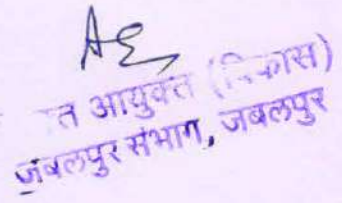 त आयुक्त (विकास)
जबलपुर संभाग, जबलपुर